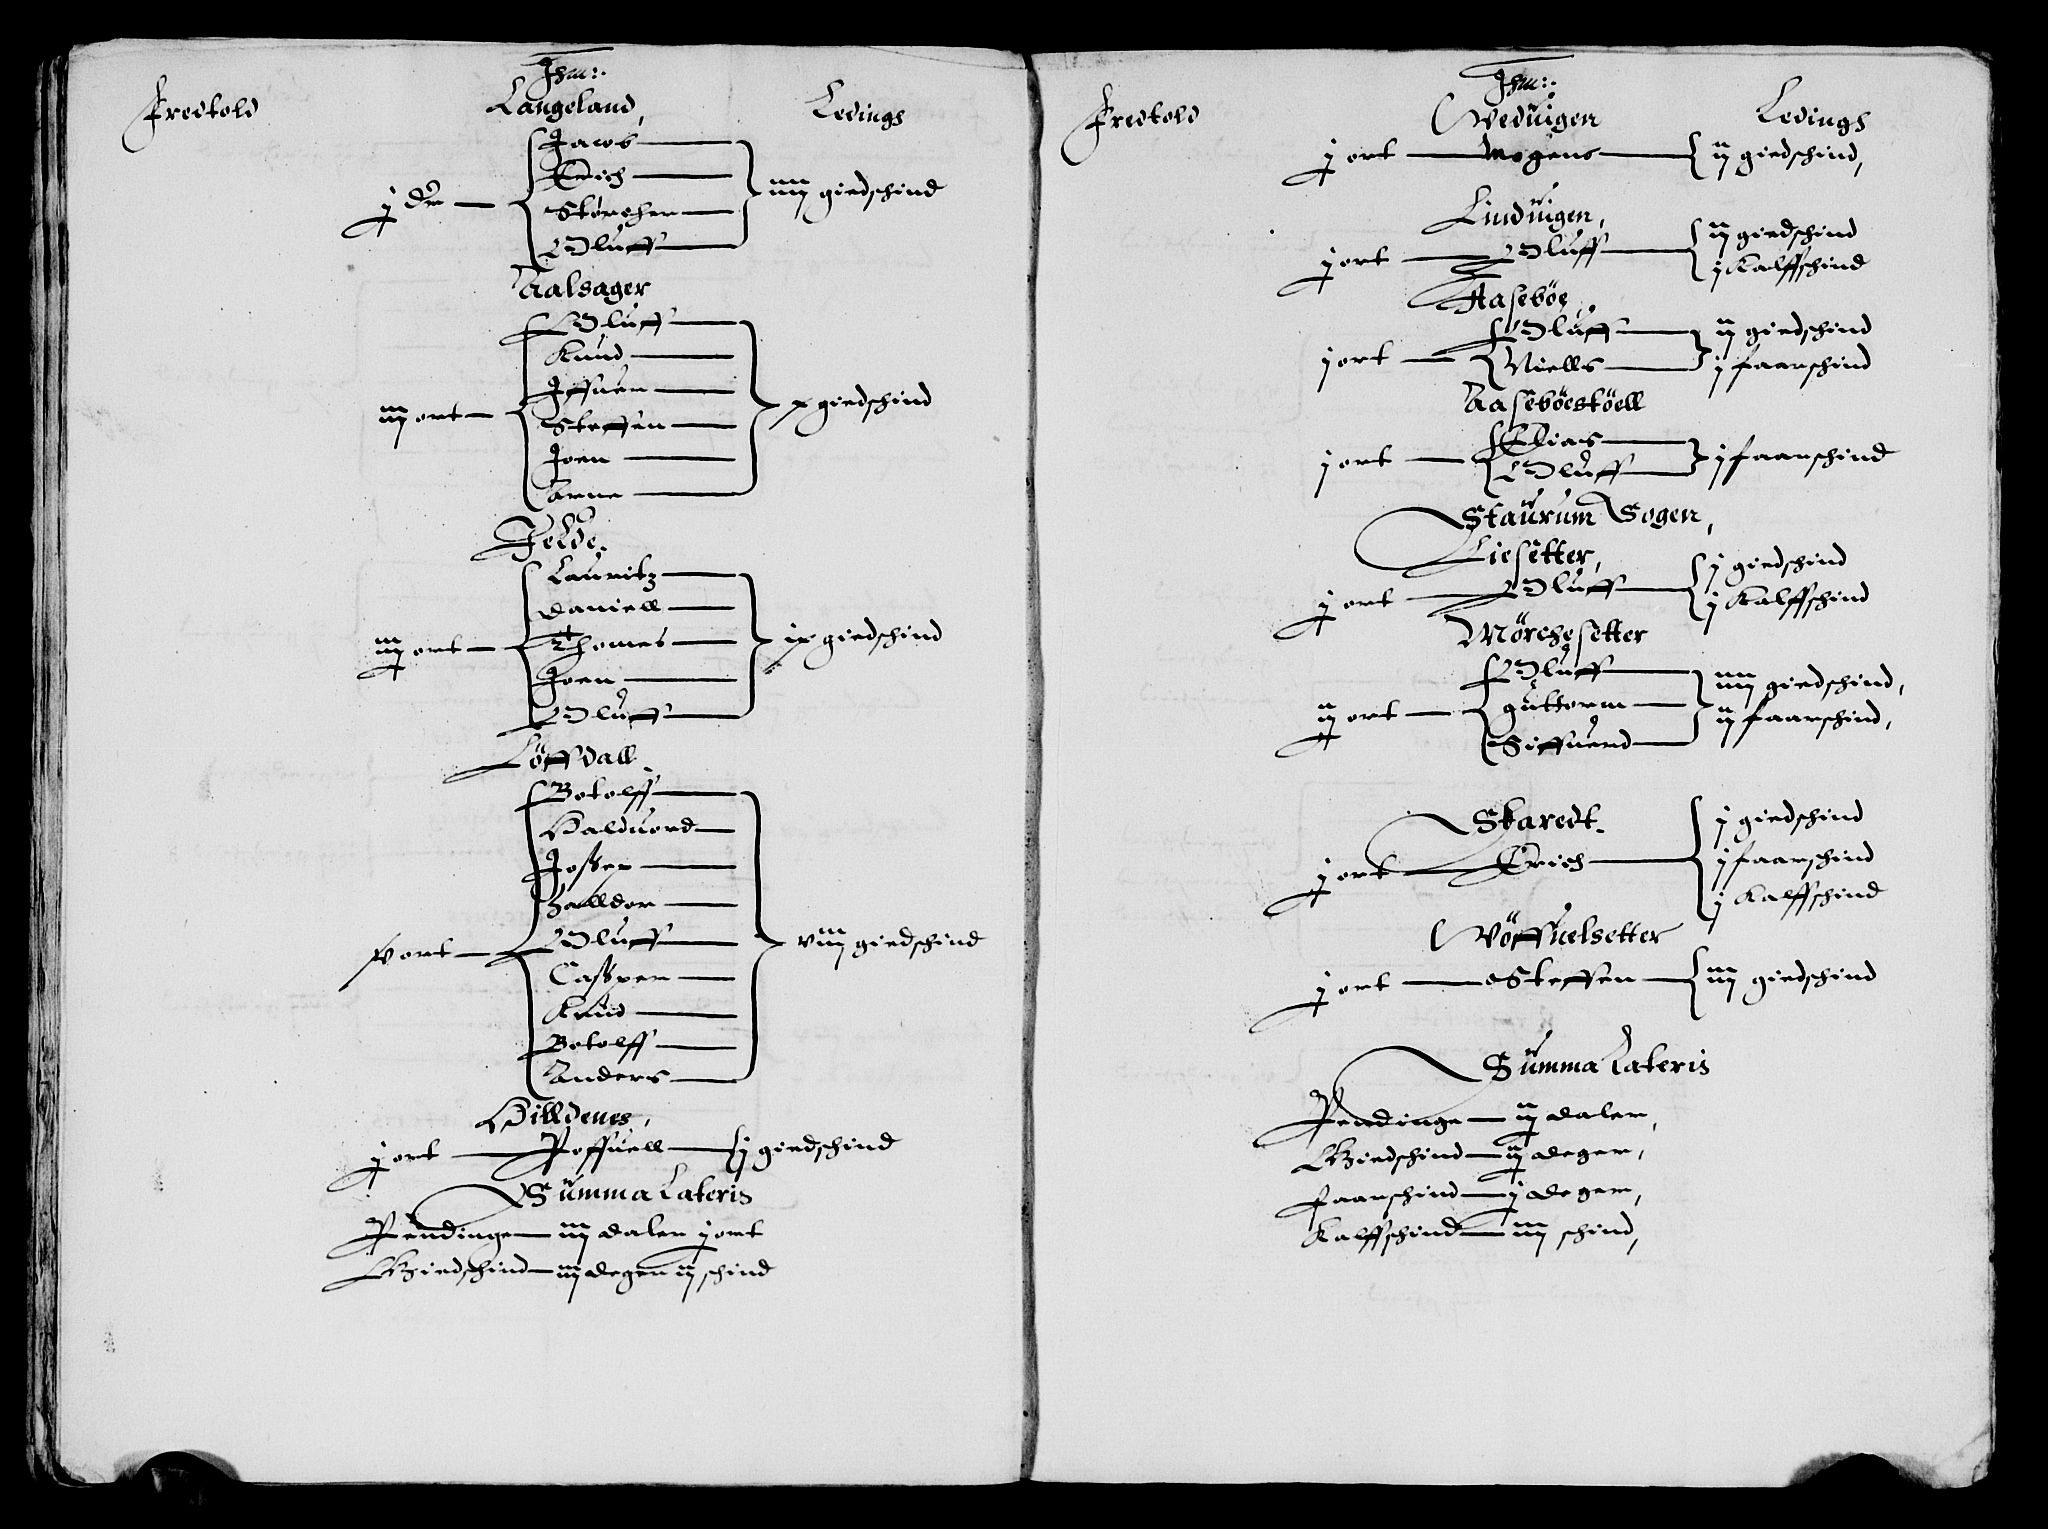 Jtem:
Fredtold Langeland, Ledings
j dr {Jacob
Erich
Störcher
Oluff} iiij giedschind
Aalsager
iij ort {Oluff
Knud
Iffuer
Steffen
Joen
Arne} x giedschind
Felde.
iij ort {Lauritz
Daniell
Thomes
Joen
Oluff} ix giedschind
Löffdall.
v ort {Botolff
Halduord
Joßep
Halldor
Oluff
Caßper
Knud
Botolff
Anders} viij giedschind
Hilldenes,
j ort Poffuell {j giedschind
Summa Lateris
Pendinge iij daler j ort
Giedschind iij deger ij schind
Jtem:
Fredtold Weduigen Ledings
j ort Mogens {ij giedschind,
Linduigen,
j ort Oluff {ij giedschind
j Kalffschind
Haseböe
j ort {Oluff
Niells} ij giedschind
j faarschind
Aaseböestöell
j ort {Elias
Oluff} j faarschind
Staurum Sogen,
Liesetter,
j ort Oluff {j giedschind
j Kalffschind
Mörchesetter
ij ort {Oluff
guttorm
Siffuerd} iiij giedschind,
ij faarschind,
Skaredt.
j ort Erich {j giedschind
j faarschind
j Kalffschind
Wöffuelsetter
j ort Steffen {iij giedschind
Summa Lateris
Pendinge ij daler,
Giedschind ij deger,
Faarschind j deger,
Kalffschind iij schind,